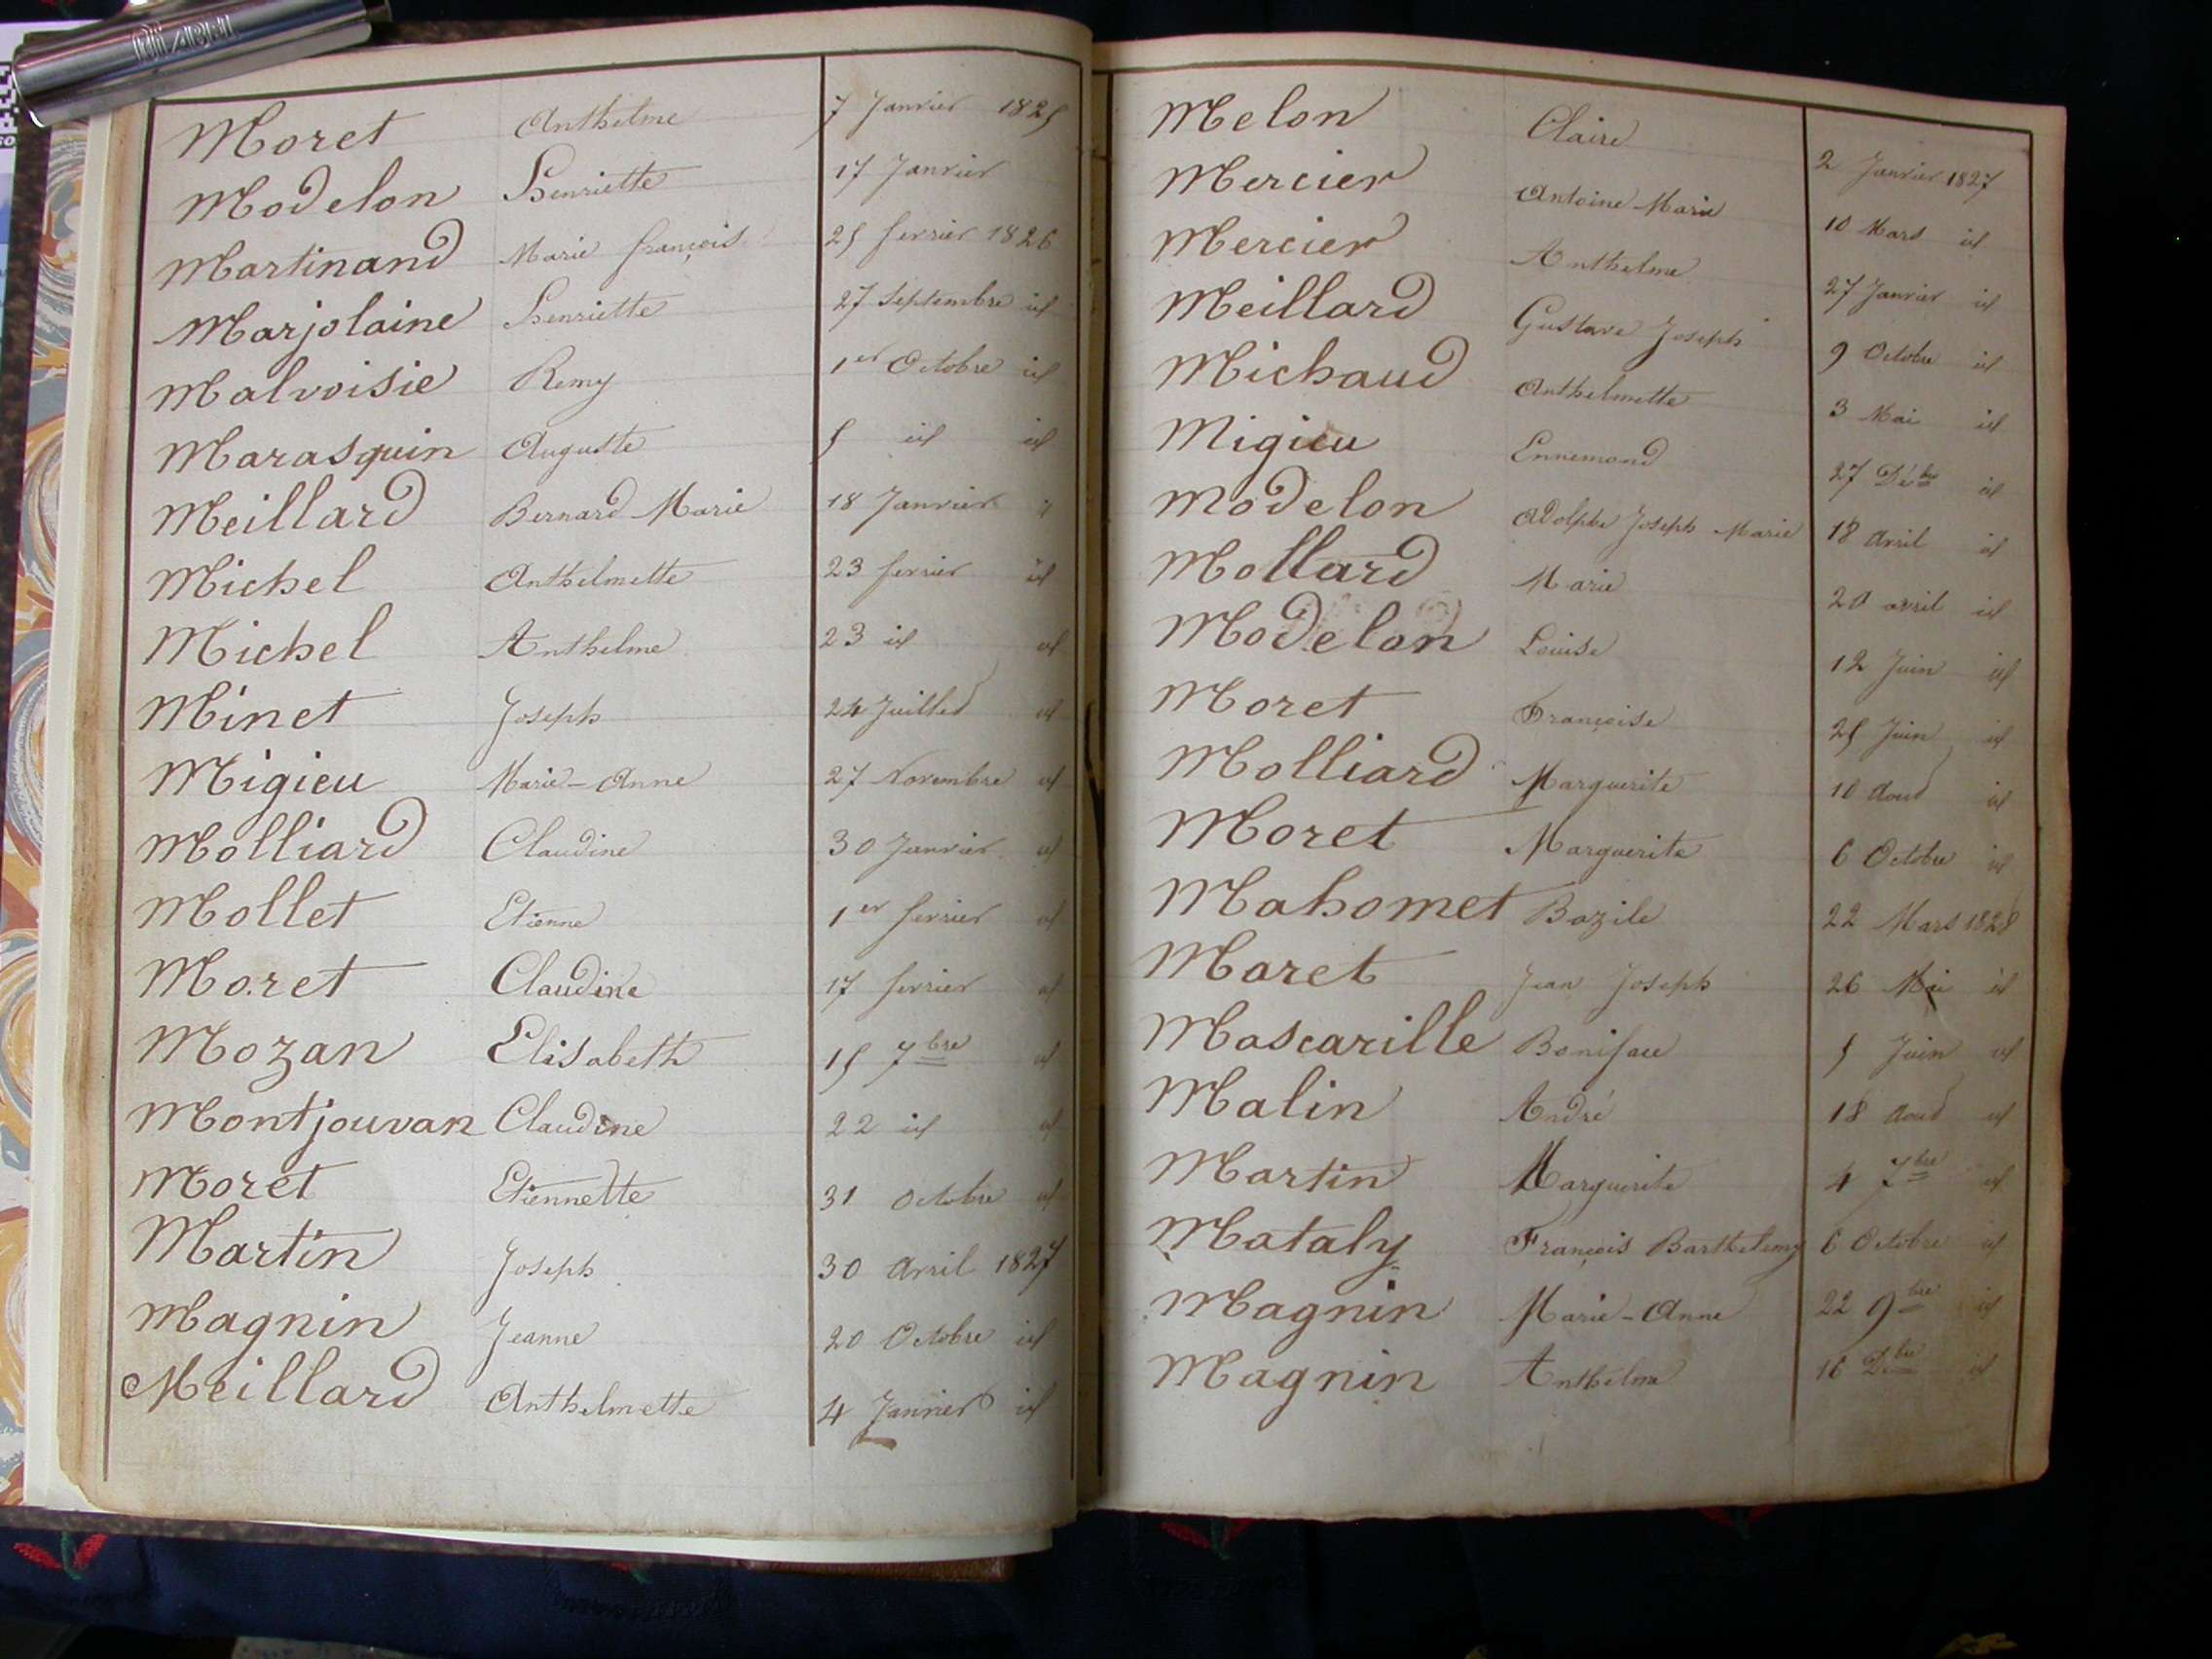 Moret Anthelme 7 Janvier 1825
Modelon Henriette 17 Janvier
Martinand Marie françois 25 fevrier 1826
Marjolaine Henriette 27 Septembre id
Malvoisie Remy 1er Octobre id
Marasquin Auguste 5 id id
Meillard Bernard Marie 18 Janvier id
Michel Anthelmette 23 fevrier id
Michel Anthelme 23 id id
Minet Joseph 24 Juillet id
Migieu Marie-Anne 27 Novembre id
Molliard Claudine 30 Janvier id
Mollet Etienne 1er fevrier id
Moret Claudine 17 fevrier id
Mozan Elisabeth 15 7bre id
Montjouvan Claudine 22 id id
Moret Etiennette 31 Octobre id
Martin Joseph 30 Avril 1827
Magnin Jeanne 20 Octobre id
Meillard Anthelmette 4 Janvier id
Melon Claire 2 Janvier 1827
Mercier Antoine Marie 10 Mars id
Mercier Anthelme 27 Janvier id
Meillard Gustave Joseph 9 Octobre id
Michaud Anthelmette 3 Mai id
Migieu Ennemond 27 Décbre id
Modelon Adolphe Joseph Marie 18 Avril id
Mollard Marie 20 avril id
Modelon Louise 12 Juin id
Moret Françoise 25 Juin id
Molliard Marguerite 10 Aout id
Moret Marguerite 6 Octobre id
Mahomet Bazile 22 Mars 1828
Maret Jean Joseph 26 Mai id
Mascarille Boniface 5 Juin id
Malin André 18 Aout id
Martin Marguerite 4 7bre id
Mataly François Barthelemy 6 Octobre id
Magnin Marie-Anne 22 9bre id
Magnin Anthelme 16 Dbre id